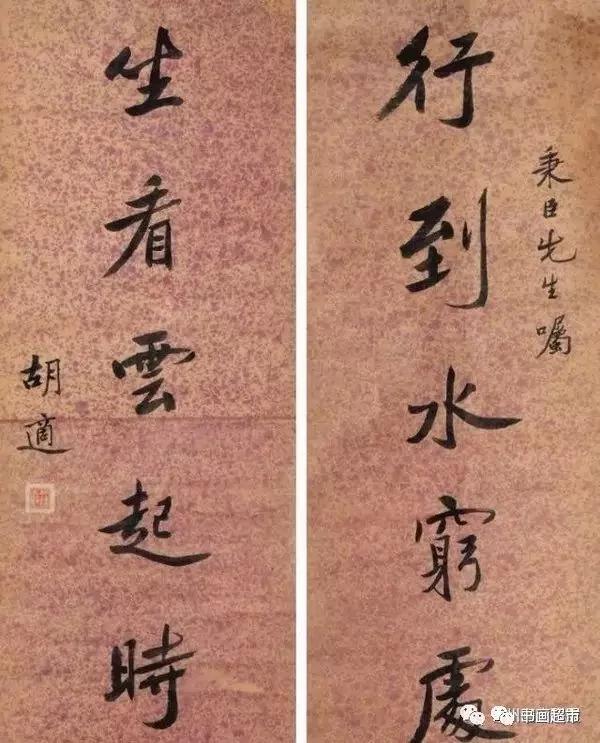 秉臣先生嘱
行到水窮處
坐看雲起時
胡適
州书画超市